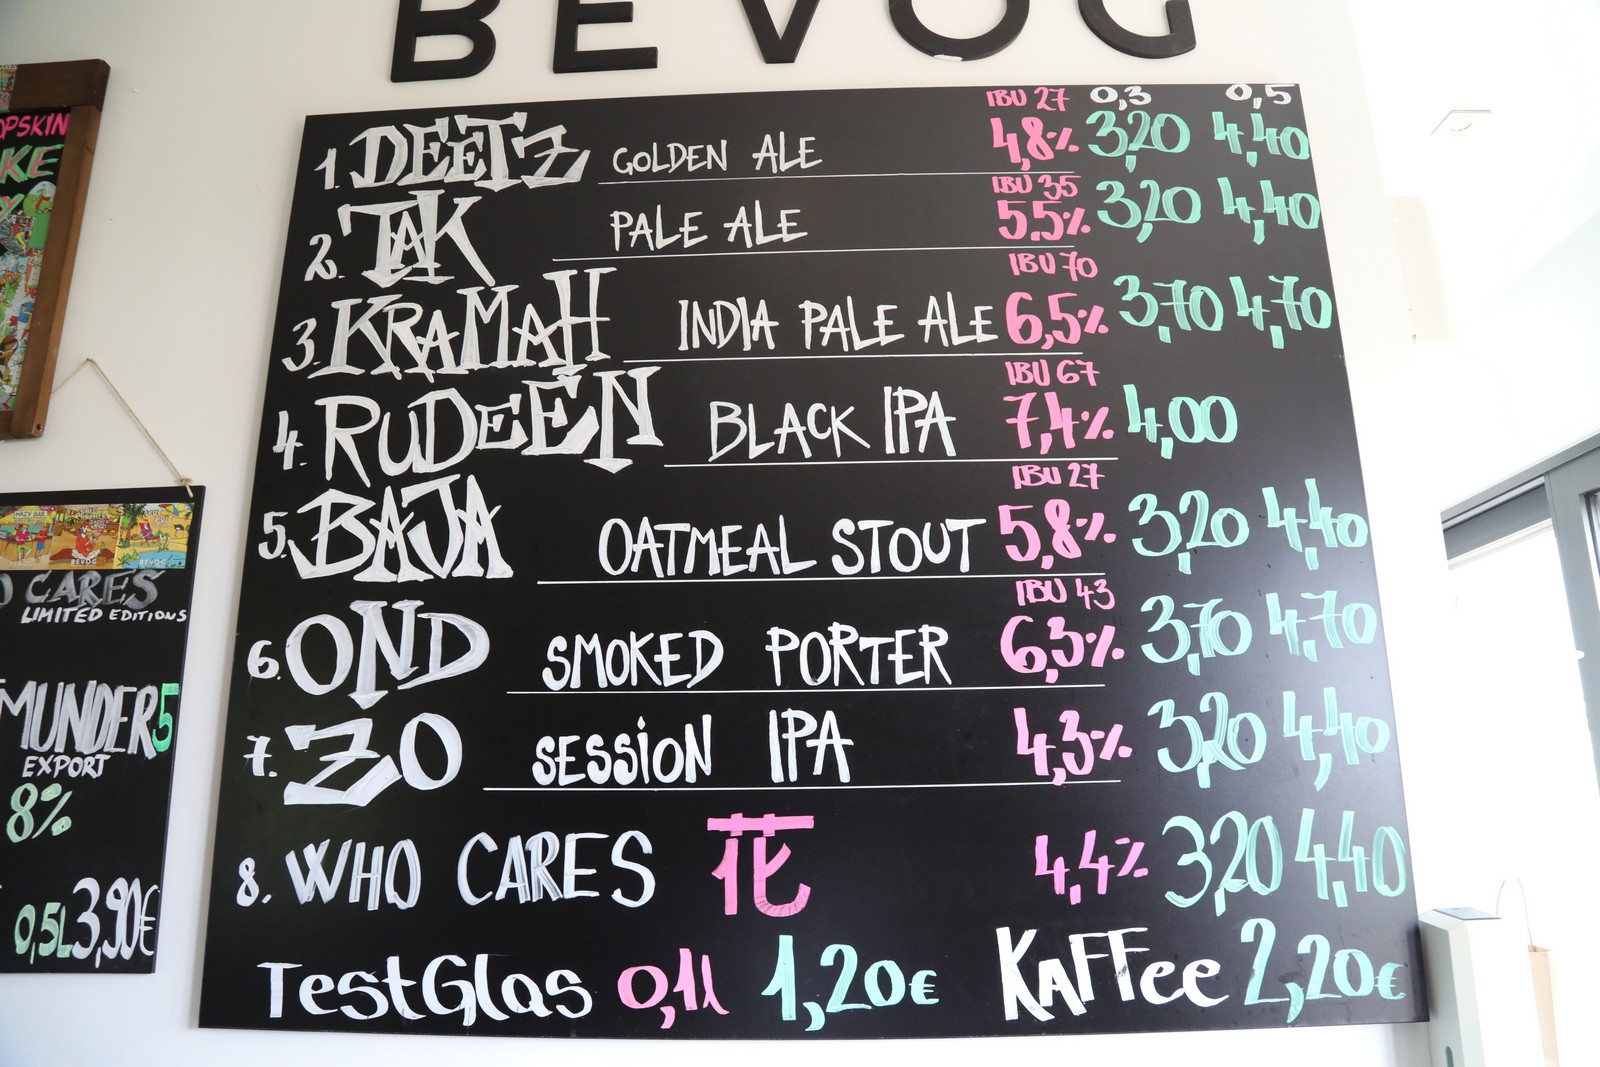 BEVOG
IBU 27 0,3 0,5
1. DEETZ GOLDEN ALE 4,8% 3,20 4,40
IBU 35
2. TAK PALE ALE 5.5% 3,20 4,40
IBU 70
3. KRAMAH INDIA PALE ALE 6,5% 3,70 4,70
IBU 67
4. RUDEEN BLACK IPA 7,4% 4,00
IBU 27
5. BAJA OATMEAL STOUT 5,8% 3,20 4,40
IBU 43
6. OND SMOKED PORTER 6,3% 3,70 4,70
7. ZO SESSION IPA 4,3% 3,20 4,40
8. WHO CARES 花 4,4% 3,20 4,40
TestGlas 0,1l 1,20€ KAFFee 2,20€
OPSKIN
KE
Y
BEVOG BEVOG
O CARES
LIMITED EDITIONS
MUNDER 5
EXPORT
8%
0,5L 3,90€